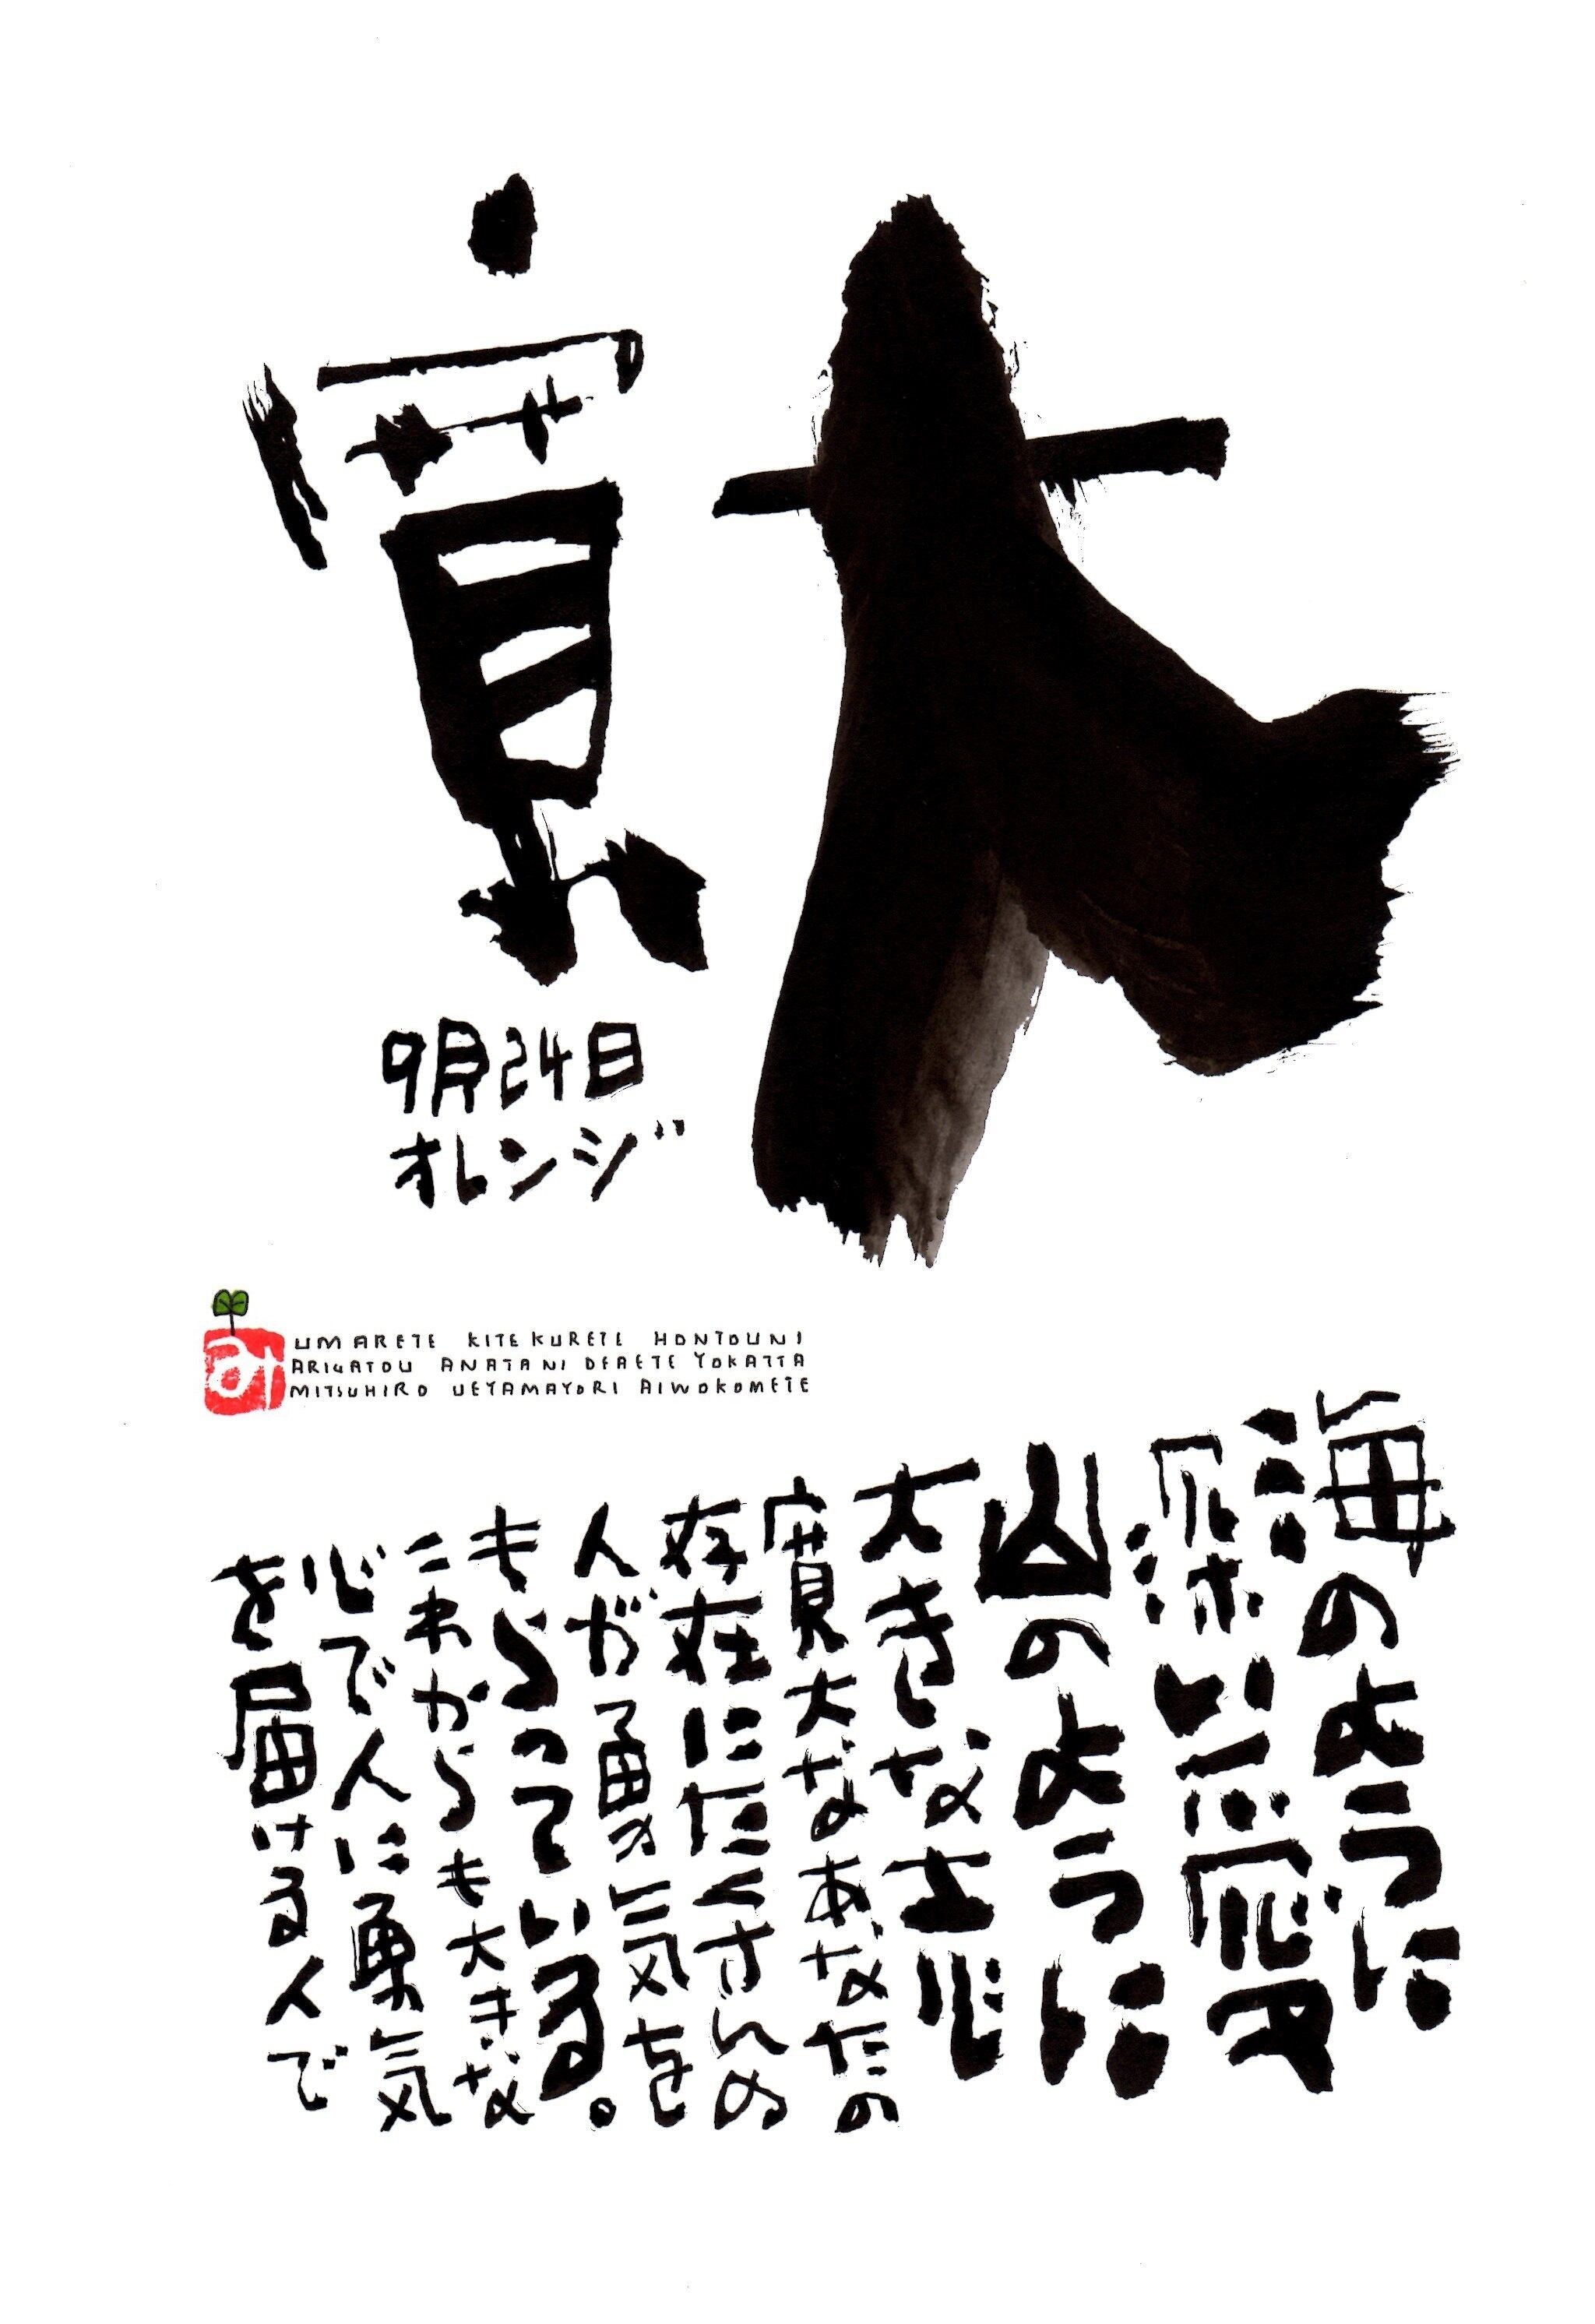 寛大
9月24日
オレンジ
UMARETE KITE KURETE HONTOUNI
ARIGATOU ANATANI DEAETE YOKATTA
MITSUHIRO UEYAMAYORI AIWOKOMETE
海のように
深い愛
山のように
大きな志
寛大なあなたの
存在にたくさんの
人が勇気を
もらっている。
これからも大きな
心で人に勇気
を届ける人で